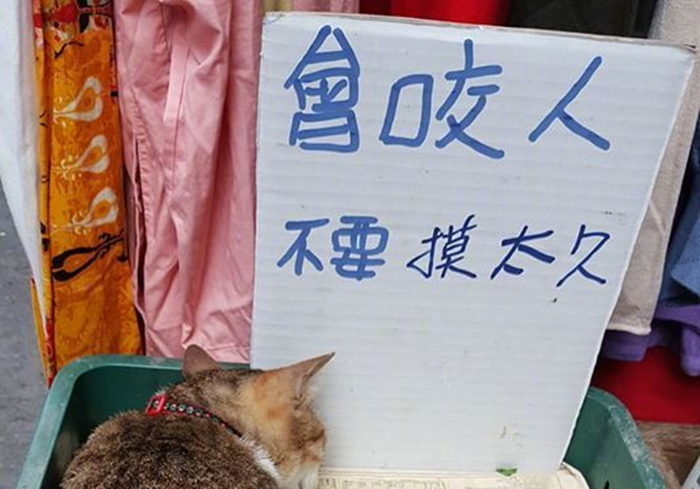 會咬人
不要摸太久